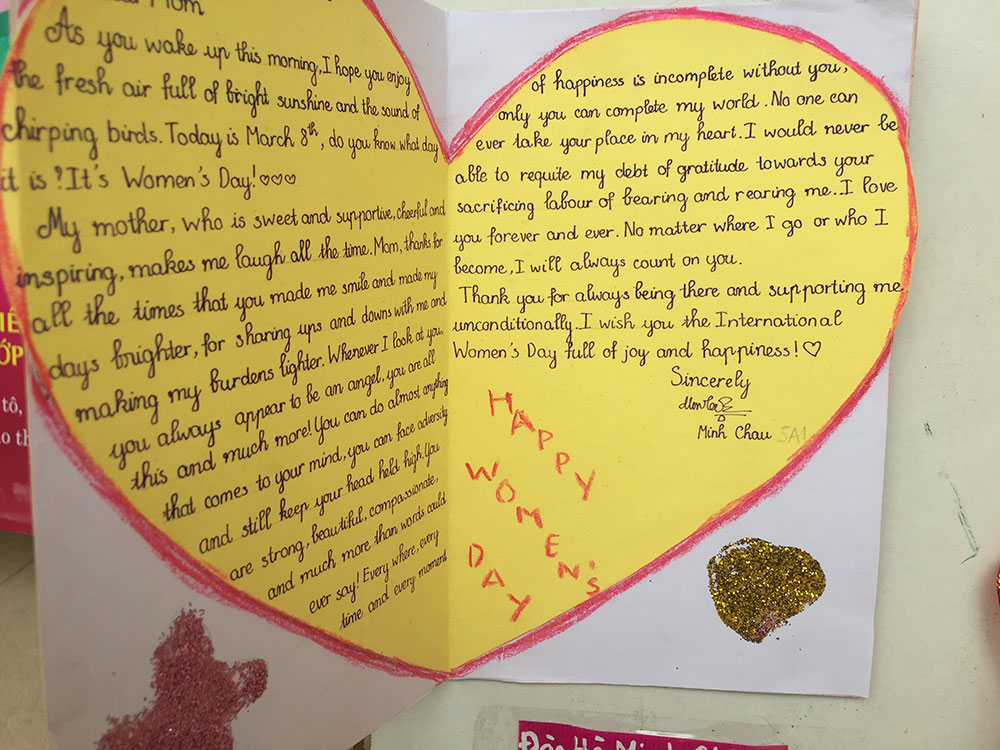 Mom
As you wake up this morning, I hope you enjoy
the fresh air full of bright sunshine and the sound of
chirping birds. Today is March 8th, do you know what day
it is? It's Women's Day! ♡♡♡
My mother, who is sweet and supportive, cheerful and
inspiring, makes me laugh all the time. Mom, thanks for
all the times that you made me smile and made my
days brighter, for sharing ups and downs with me and
making my burdens lighter. Whenever I look at you,
you always appear to be an angel, you are all
this and much more! You can do almost anything
that comes to your mind, you can face adversity
and still keep your head held high. You
are strong, beautiful, compassionate,
and much more than words could
ever say! Every where, every
time and every moment
of happiness is incomplete without you,
only you can complete my world. No one can
ever take your place in my heart. I would never be
able to requite my debt of gratitude towards your
sacrificing labour of bearing and rearing me. I love
you forever and ever. No matter where I go or who I
become, I will always count on you.
Thank you for always being there and supporting me
unconditionally. I wish you the International
Women's Day full of joy and happiness! ♡
Sincerely
Minh Chau 5A1
HAPPY
WOMEN'S
DAY
tô,